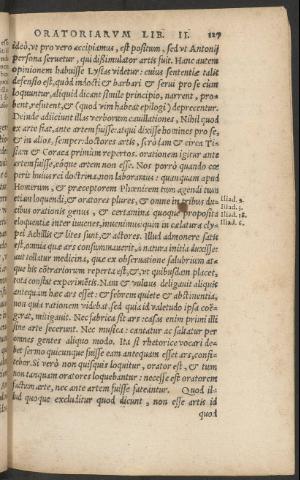 ORATORIARVM LIB. II. 127
ideò, vt pro vero accipiamus, est positum, sed vt Antonij
persona seruetur, qui dissimulator artis fuit. Hanc autem
opinionem habuisse Lysias videtur: cuius sententiæ talis
defensio est, quòd indocti & barbari & serui pro se cùm
loquuntur, aliquid dicant simile principio, narrent, pro-
bent, refutent, & (quod vim habeat epilogi) deprecentur.
Deinde adiiciunt illas verborum cauillationes, Nihil quod
ex arte fiat, ante artem fuisse. atqui dixisse homines pro se,
& in alios, semper: doctores artis, serò iam & circa Tisi-
am & Coraca primùm repertos. orationem igitur ante
artem fuisse, eóque artem non esse. Nos porrò quando coe-
perit huius rei doctrina, non laboramus: quanquam apud
Homerum, & præceptorem Phœnicem tum agendi tum
etiam loquendi, & oratores plures, & omne in tribus du-
cibus orationis genus, & certamina quoque proposita
eloquentiæ inter iuuenes, inuenimus: quin in cælatura cly-
pei Achillis & lites sunt, & actores. Illud admonere satis
est, omnia quæ ars consummauerit, à natura initia duxisse:
aut tollatur medicina, quæ ex obseruatione salubrium at-
que his cõtrariorum reperta est, &, vt quibusdam placet,
tota constat experimẽtis. Nam & vulnus deligauit aliquis
antequam hæc ars esset: & febrem quiete & abstinentia,
non quia rationem videbat, sed quia id valetudo ipsa coë-
gerat, mitigauit. Nec fabrica sit ars: casas enim primi illi
sine arte fecerunt. Nec musica: cantatur ac saltatur per
omnes gentes aliquo modo. Ita si rhetorice vocari de-
bet sermo quicunque fuisse eam antequam esset ars, confi-
tebor. Si verò non quisquis loquitur, orator est, & tum
non tanquam oratores loquebantur: necesse est oratorem
factum arte, nec ante artem fuisse fateantur. Quod il-
lud quoque excluditur quod dicunt, non esse artis id
quod
Iliad. 9.
Iliad. 3.
Iliad. 18.
Iliad. 6.